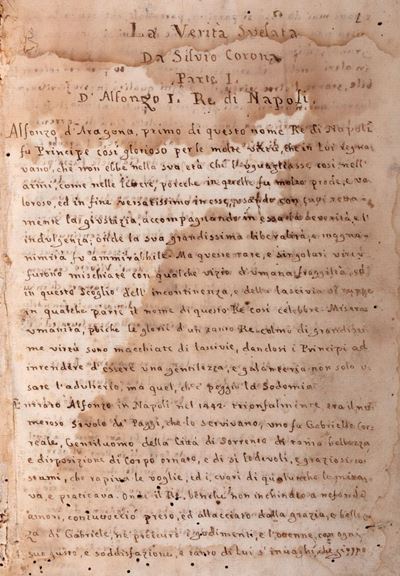 La Verità Svelata
Da Silvio Corona
Parte I.
D'Alfonzo I. Re di Napoli.
Alfonzo d'Aragona, primo di questo nome Re di Napoli
fu Principe così glorioso per le molte virtù, che in lui regna
vano, che non ebbe nella sua età chi l'uguagliasse, così nell'
armi, come nelle lettere, poiche in quelle fu molto prode, e va
loroso, ed in fine versatissimo in esse, usando con tutti retta
mente la giustizia, accompagnando in essa la severità, e l'
indulgenza, onde la sua grandissima liberalità, e magna
nimità fù ammirabile. Ma queste rare, e singolari virtù
furono mischiate con qualche vizio d'umana fragilità, ed
in questo scoglio dell'incontinenza, e della lascivia
in qualche parte il nome di questo Re così celebre. Misera
umanità, poiche le glorie d'un tanto Re colmo di grandissi
me virtù sono macchiate di lascivie, dandosi i Principi ad
intendere d'essere una gentilezza, e galanteria non solo u
sare l'adulterio, ma quel, che è peggio la Sodomia.
Entrato Alfonzo in Napoli nel 1442. trionfalmente era il nu
meroso stuolo de' Paggi, che lo servivano, uno fu Gabriello Cor
reale, Gentiluomo della Città di Sorrento di tanta bellezza
e disposizione di Corpo ornato, e di sì lodevoli, e graziosi co
stumi, che rapiva le voglie, ed i cuori di qualunche lo mirav
va, e praticava. Onde il Re, benche non inchinato a nefandi
amori, contuttociò preso, ed allacciato dalla grazia, e bellez
za di Gabriele, ne procurò i godimenti, e l'ottenne, con ogni
suo gusto, e soddisfazione, e tanto di lui s'invaghì, che